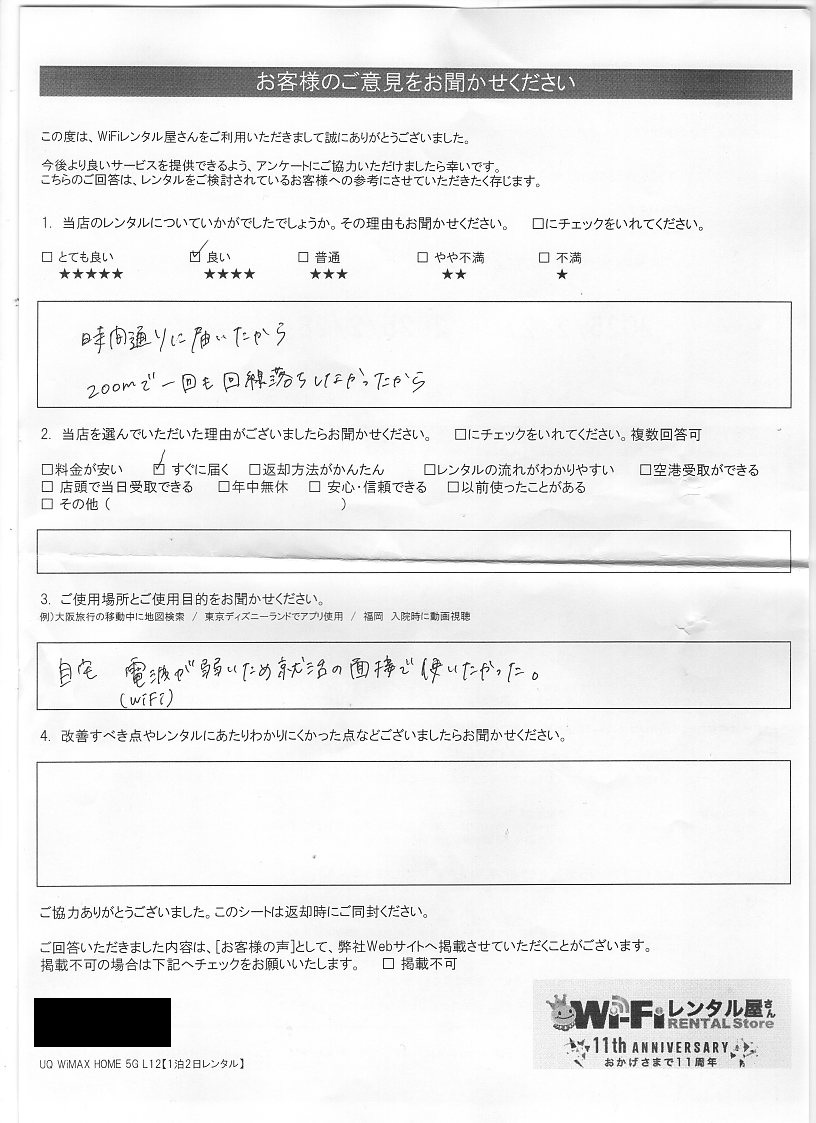 お客様のご意見をお聞かせください
この度は、WiFiレンタル屋さんをご利用いただきまして誠にありがとうございました。
今後より良いサービスを提供できるよう、アンケートにご協力いただけましたら幸いです。
こちらのご回答は、レンタルをご検討されているお客様への参考にさせていただきたく存じます。
1. 当店のレンタルについていかがでしたでしょうか。その理由もお聞かせください。 □にチェックをいれてください。
□ とても良い ☑ 良い □ 普通 □ やや不満 □ 不満
★★★★★ ★★★★ ★★★ ★★ ★
時間通りに届いたから
zoomで一回も回線落ちしなかったから
2. 当店を選んでいただいた理由がございましたらお聞かせください。 □にチェックをいれてください。複数回答可
□料金が安い ☑ すぐに届く □返却方法がかんたん □レンタルの流れがわかりやすい □空港受取ができる
□ 店頭で当日受取できる □年中無休 □ 安心・信頼できる □以前使ったことがある
□ その他 ( )
3. ご使用場所とご使用目的をお聞かせください。
例)大阪旅行の移動中に地図検索 / 東京ディズニーランドでアプリ使用 / 福岡 入院時に動画視聴
自宅 電波が弱いため就活の面接で使いたかった。
(WiFi)
4. 改善すべき点やレンタルにあたりわかりにくかった点などございましたらお聞かせください。
ご協力ありがとうございました。このシートは返却時にご同封ください。
ご回答いただきました内容は、[お客様の声]として、弊社Webサイトへ掲載させていただくことがございます。
掲載不可の場合は下記へチェックをお願いいたします。 □ 掲載不可
Wi-Fiレンタル屋さん
RENTAL Store
11th ANNIVERSARY
おかげさまで11周年
UQ WiMAX HOME 5G L12【1泊2日レンタル】